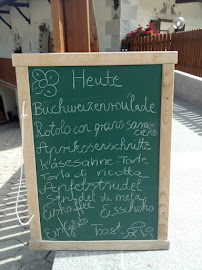 Heute
Buchweizenroulade
Rotolo con grano sara-
ceno
Aprikosenschnitte
Käsesahne-Torte
Torta di ricotta
Apfelstrudel
Strudel di mela
Eiskaffee Eisschoko
Toast